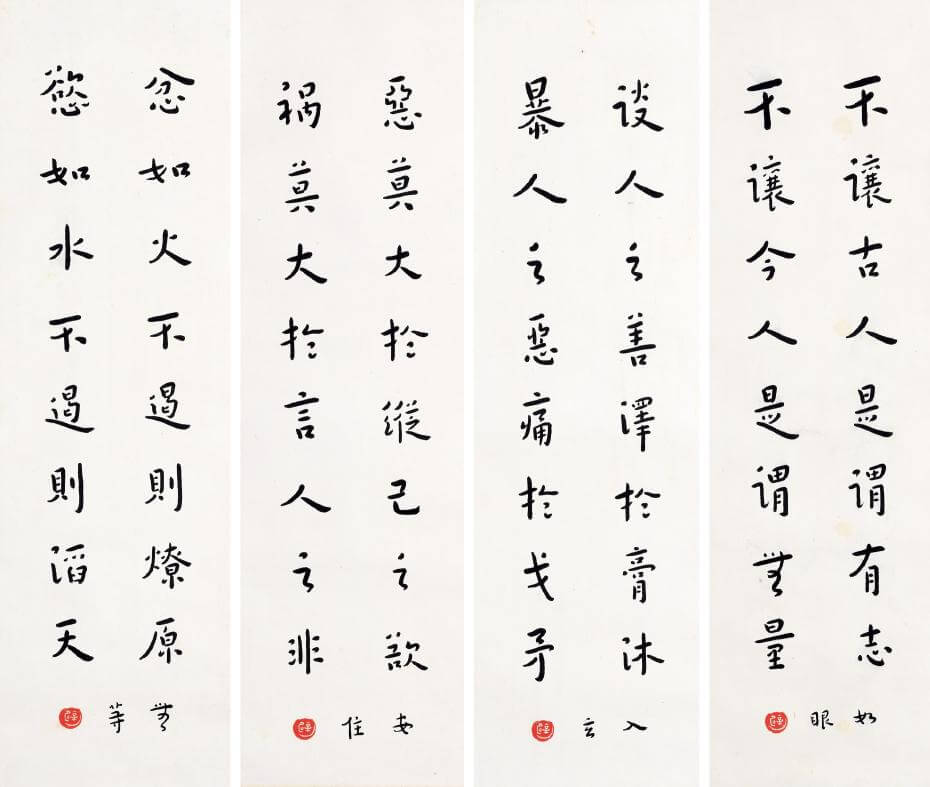 不讓古人是谓有志
不讓今人是谓無量
如眼
談人之善澤於膏沐
暴人之惡痛於戈矛
入玄
惡莫大於縱己之欲
禍莫大於言人之非
安住
忿如火不遏則燎原
慾如水不遏則滔天
無等